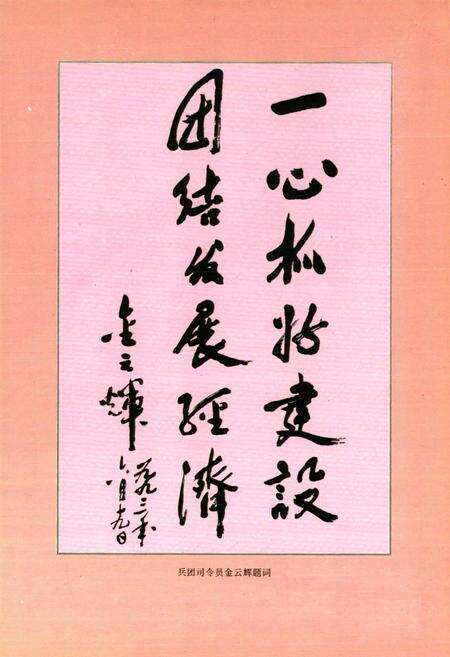 一心抓好建设
团结发展经济
金云辉
一九九三年
六月十九日
兵团司令员金云辉题词